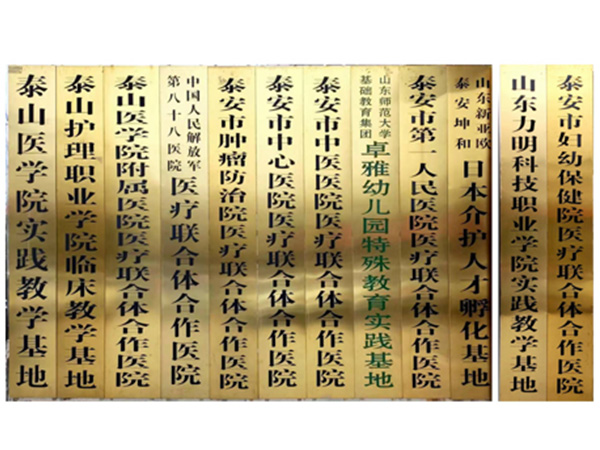 泰山医学院实践教学基地
泰山护理职业学院临床教学基地
泰山医学院附属医院医疗联合体合作医院
中国人民解放军
第八十八医院
医疗联合体合作医院
泰安市肿瘤防治院医疗联合体合作医院
泰安市中心医院医疗联合体合作医院
泰安市中医医院医疗联合体合作医院
山东师范大学
基础教育集团
卓雅幼儿园特殊教育实践基地
泰安市第一人民医院医疗联合体合作医院
山东新亚欧
泰安坤和
日本介护人才孵化基地
山东力明科技职业学院实践教学基地
泰安市妇幼保健院医疗联合体合作医院